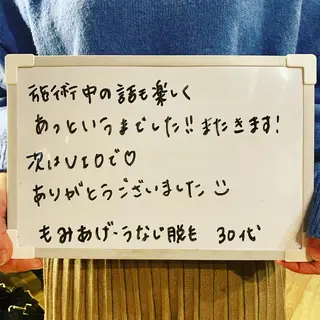 施術中の話も楽しく
あっというまでした!!またきます!
次はVIOで♡
ありがとうございました☺
もみあげ・うなじ脱毛 30代